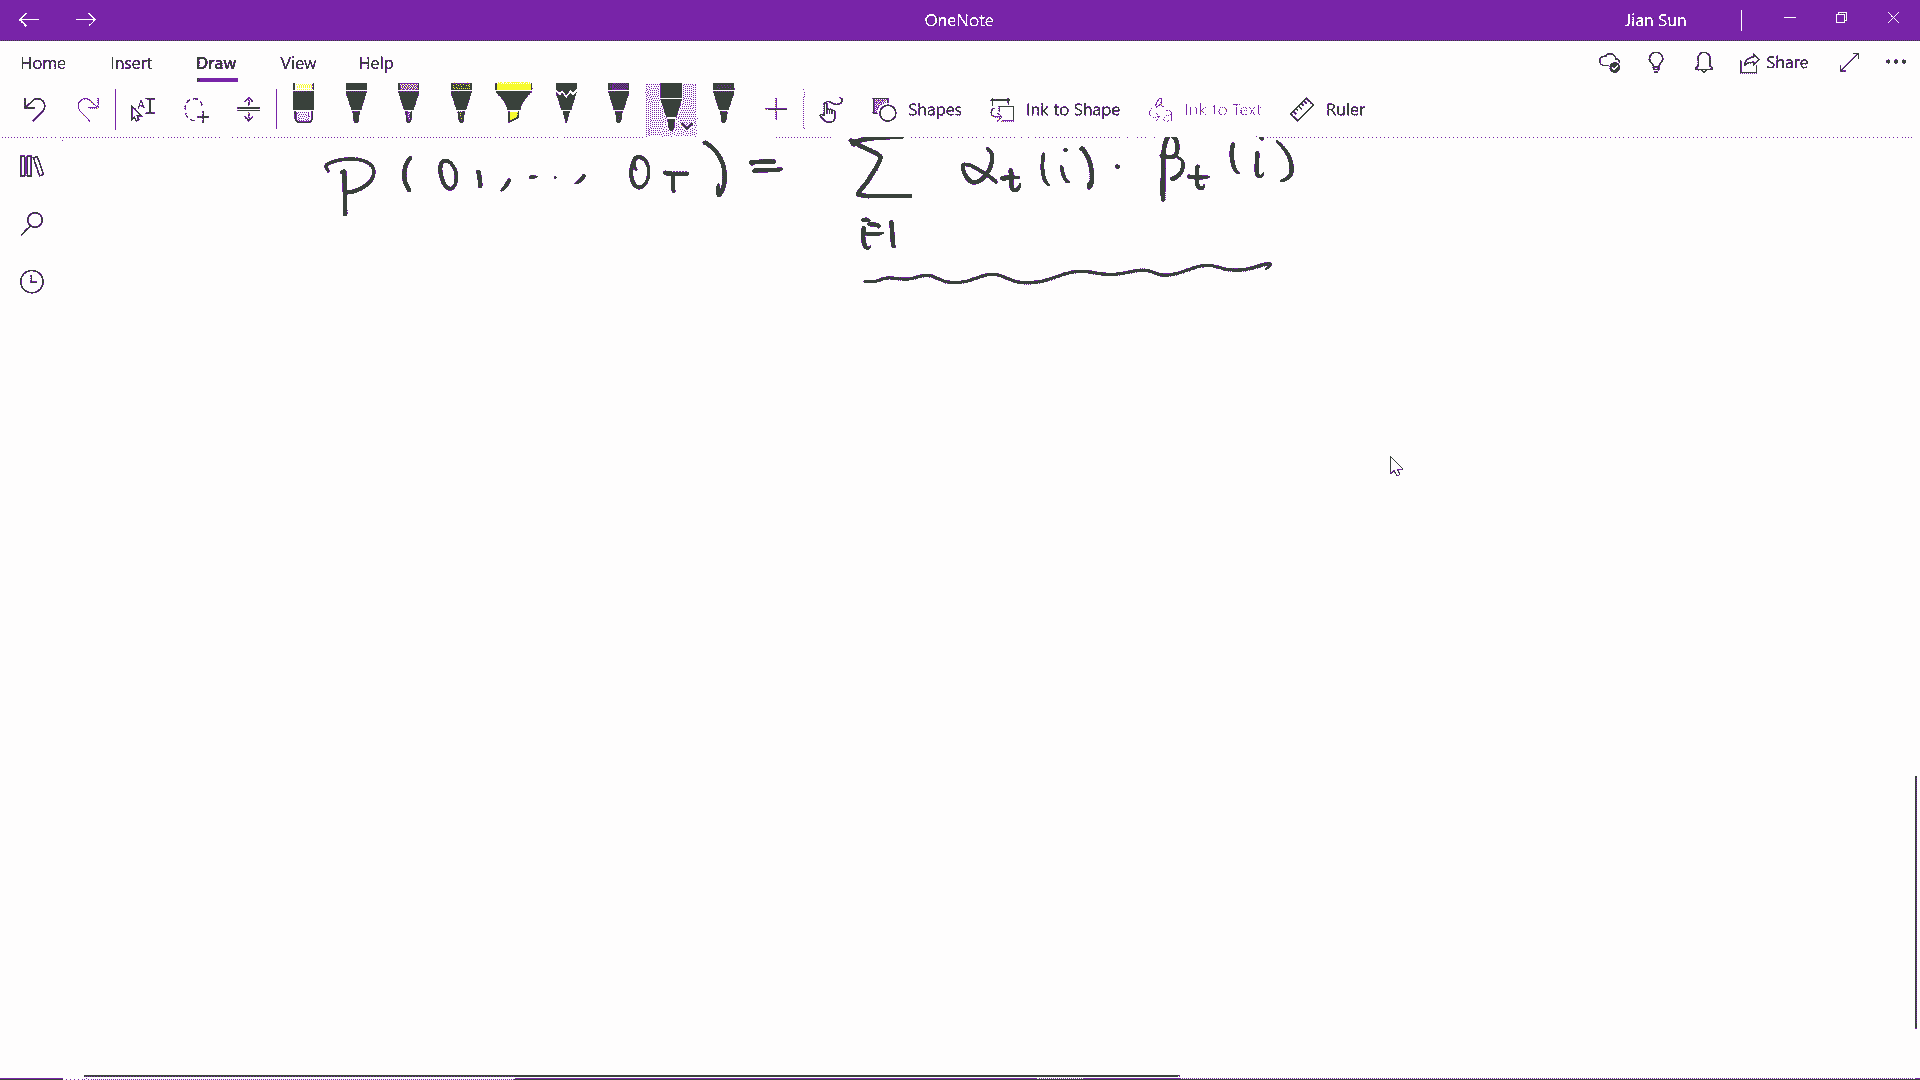 OneNote
Jian Sun
Home Insert Draw View Help
Share
Shapes Ink to Shape Ink to Text Ruler
P(O₁, ..., O_T) = ∑ α_t(i) · β_t(i)
i=1